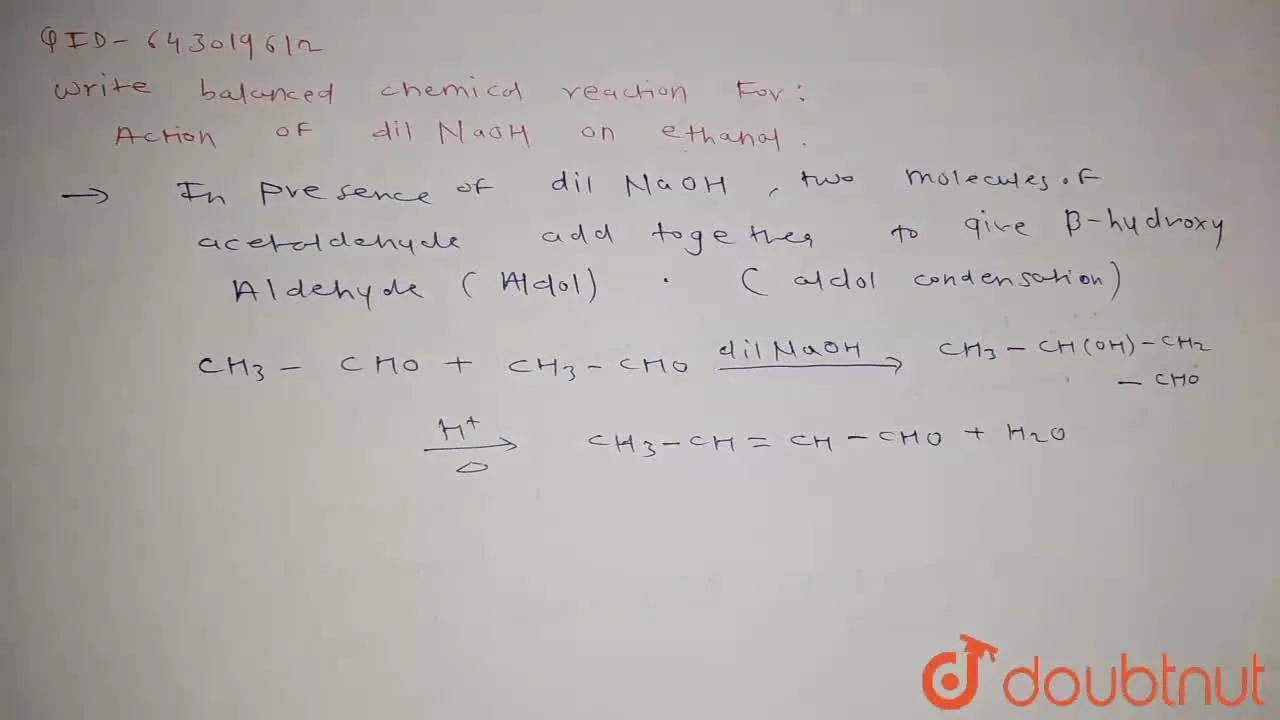 QID- 643019612
Write balanced chemical reaction For:
Action OF dil NaOH on ethanol.
→ In presence of dil NaOH, two molecules.of
acetaldehyde add together to give β-hydroxy
Aldehyde (Aldol). (aldol condensation)
CH3 - CHO + CH3 - CHO dil NaOH → CH3 - CH(OH) - CH2
- CHO
H+ → CH3 - CH = CH - CHO + H2O
△
doubtnut